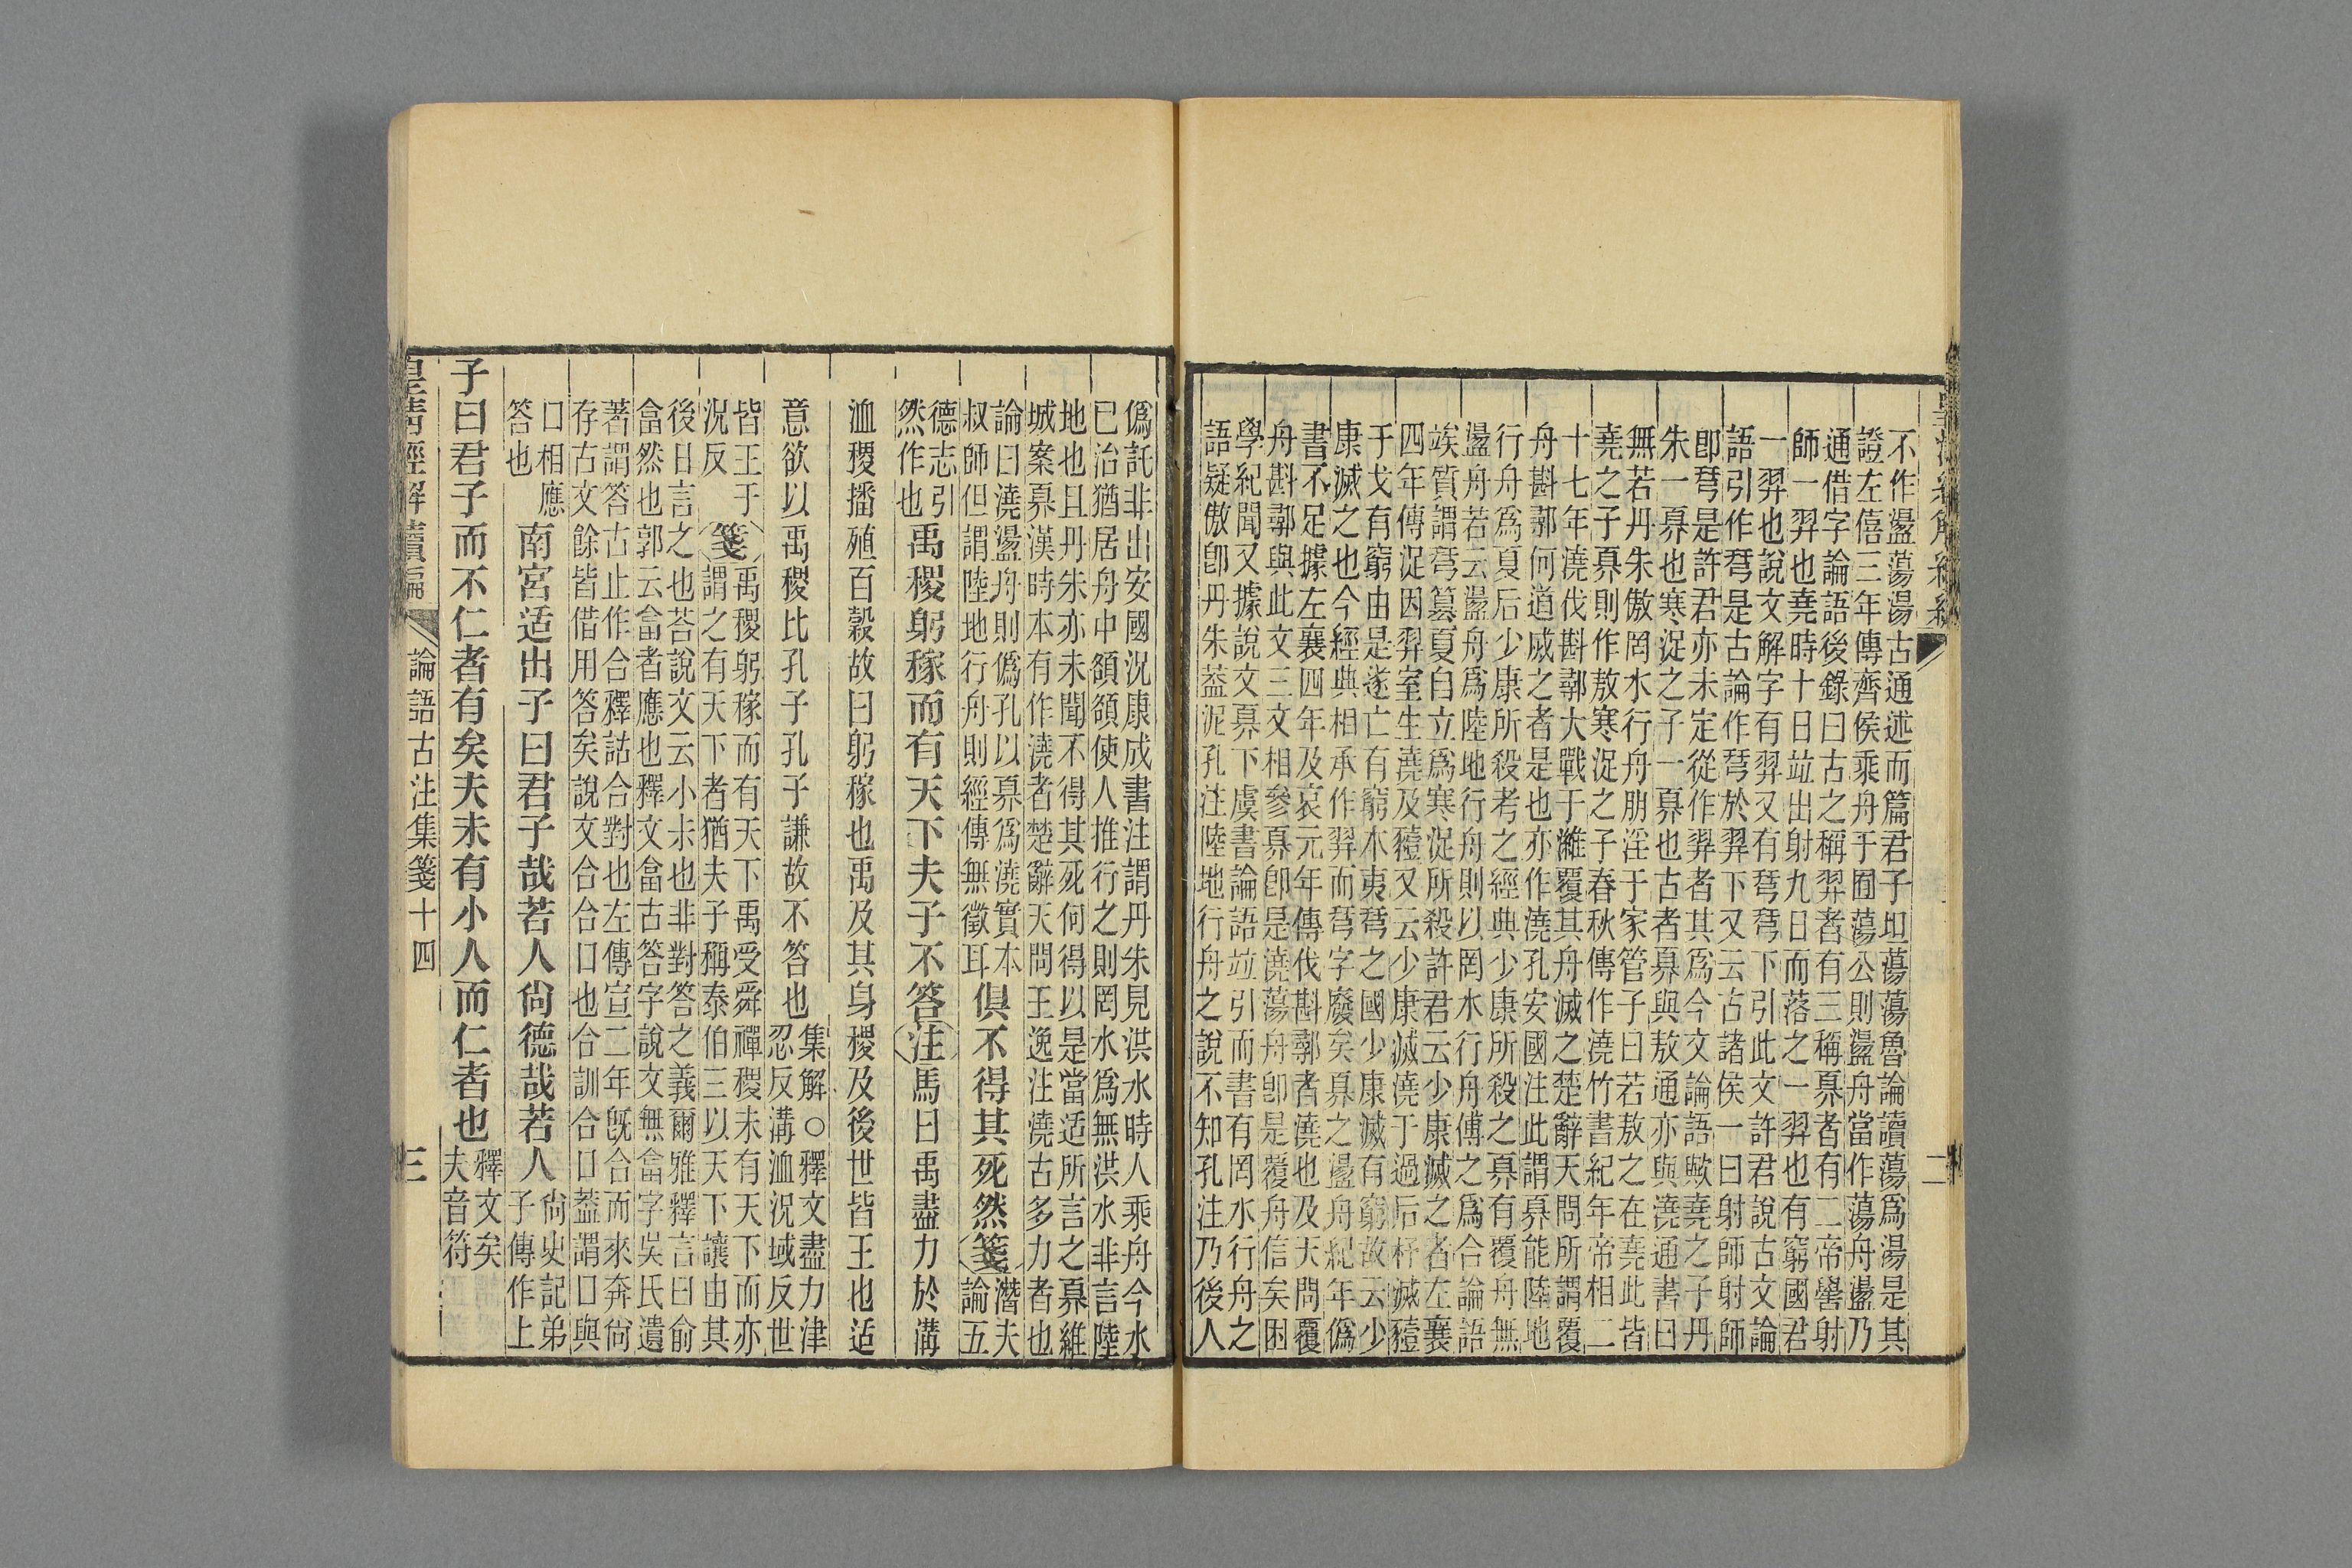 不作盪蕩湯古通述而篇君子坦蕩蕩魯論讀蕩爲湯是其
證左僖三年傳齊侯乘舟于囿蕩公則盪舟當作蕩舟盪乃
通借字論語後錄曰古之稱羿者有三稱奡者有二帝嚳射
師一羿也堯時十日竝出射九日而落之一羿也有窮國君
一羿也說文解字有羿又有䍿䍿下引此文許君說古文論
語引作䍿是古論作䍿於羿下又云古諸侯一曰射師射師
卽䍿是許君亦未定從作羿者其爲今文論語歟堯之子丹
朱一奡也寒浞之子一奡也古者奡與敖通亦與澆通書曰
無若丹朱傲罔水行舟朋淫于家管子曰若敖之在堯此皆
堯之子奡則作敖寒浞之子春秋傳作澆竹書紀年帝相二
十七年澆伐斟鄩大戰于濰覆其舟滅之楚辭天問所謂覆
舟斟鄩何道烕之者是也亦作澆孔安國注此謂奡能陸地
行舟爲夏后少康所殺考之經典少康所殺之奡有覆舟無
盪舟若云盪舟爲陸地行舟則以罔水行舟傅之爲合論語
竢質謂䍿篡夏自立爲寒浞所殺許君云少康滅之者左襄
四年傳浞因羿室生澆及豷又云少康滅澆于過后杼滅豷
于戈有窮由是遂亡有窮本夷䍿之國少康滅有窮故云少
康滅之也今經典相承作羿而䍿字廢矣奡之盪舟紀年僞
書不足據左襄四年及哀元年傳伐斟鄩者澆也及天問覆
舟斟鄩與此文三文相參奡卽是澆蕩舟卽是覆舟信矣困
學紀聞又據說文奡下虞書論語竝引而書有罔水行舟之
語疑傲卽丹朱葢泥孔注陸地行舟之說不知孔注乃後人
僞託非出安國況康成書注謂丹朱見洪水時人乘舟今水
已治猶居舟中頟頟使人推行之則罔水爲無洪水非言陸
地也且丹朱亦未聞不得其死何得以是當适所言之奡維
城案奡漢時本有作澆者楚辭天問王逸注澆古多力者也
論曰澆盪舟則僞孔以奡爲澆實本
叔師但謂陸地行舟則經傳無徵耳
俱不得其死然箋
潛夫
論五
德志引
然作也
禹稷躬稼而有天下夫子不答注馬曰禹盡力於溝
洫稷播殖百穀故曰躬稼也禹及其身稷及後世皆王也适
意欲以禹稷比孔子孔子謙故不答也
集解○釋文盡力津
忍反溝洫況域反世
皆王于
況反
箋
禹稷躬稼而有天下禹受舜禪稷未有天下而亦
謂之有天下者猶夫子稱泰伯三以天下讓由其
後日言之也荅說文云小尗也非對答之義爾雅釋言曰俞
畣然也郭云畣者應也釋文畣古答字說文無畣字吳氏遺
著謂答古止作合釋詁合對也左傳宣二年旣合而來奔尙
存古文餘皆借用答矣說文合合口也合訓合口葢謂口與
口相應
答也
南宮适出子曰君子哉若人尙德哉若人
尙史記弟
子傳作上
子曰君子而不仁者有矣夫未有小人而仁者也
釋文矣
夫音符
皇淸經解續編
論語古注集箋十四
三